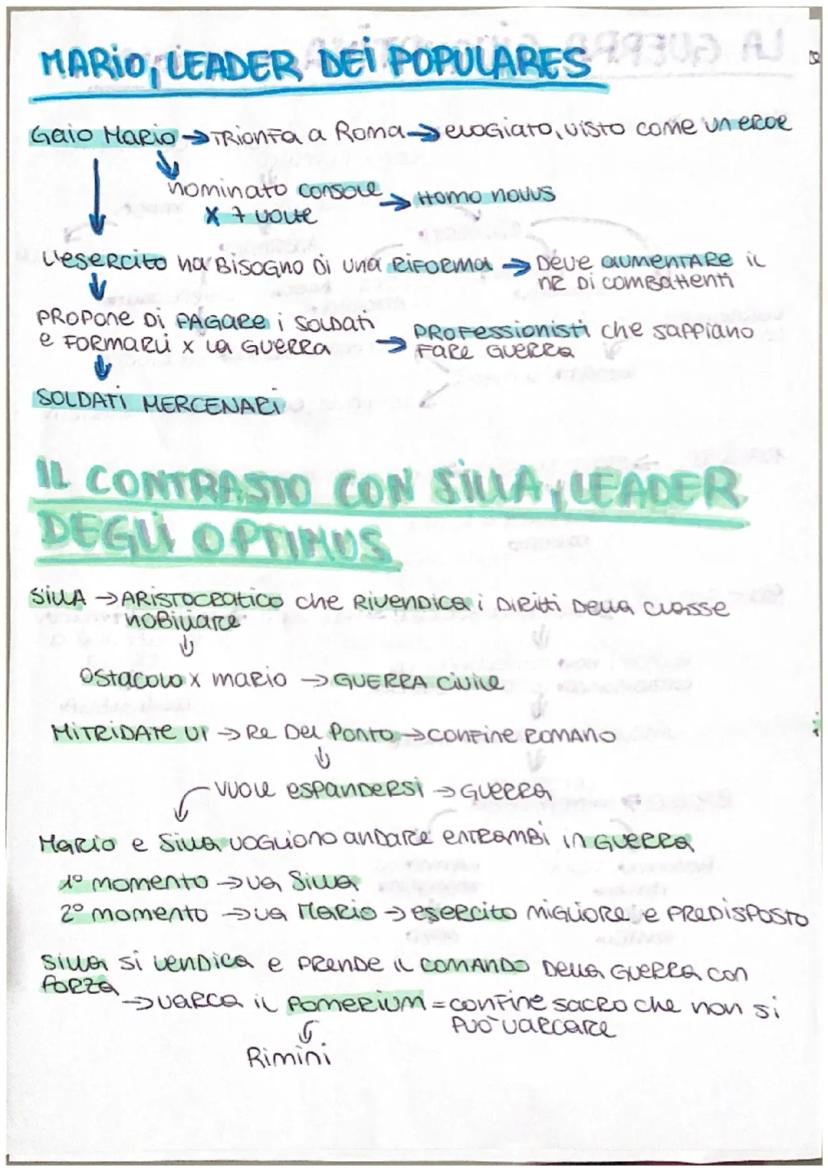 MARIO, LEADER DEI POPULARES
Gaio Mario → TRIONFA a Roma → elogiato, visto come un eroe
nominato console → Homo novus
x 7 volte
L'esercito ha BISOGNO DI una RIFORMA → Deve aumentare il
nr di combattenti
PROPONE DI PAGARE i SOLDATI → PROFessionisti che sappiano
e FORMARLI x LA GUERRA FARE GUERRA
SOLDATI MERCENARI
IL CONTRASTO CON SILLA, LEADER
DEGLI OPTIMUS
Silla → ARISTOCRATICO che RIVENDICA i DIRITTI Della classe
noBiliare
ostacolo x mario → GUERRA civile
MITRIDATE VI → Re Del Ponto → CONFINE ROMANO
vuole espandersi → GUERRA
Mario e Silla vogliono andare entrambi in GUERRA
1° momento → va Silla
2° momento → va Mario → esercito migliore e PREDISPOSTO
Silla si vendica e PRENDE il COMANDO Della Guerra con
FORZA
→ varca il Pomerium = confine sacro che non si
può varcare
Rimini